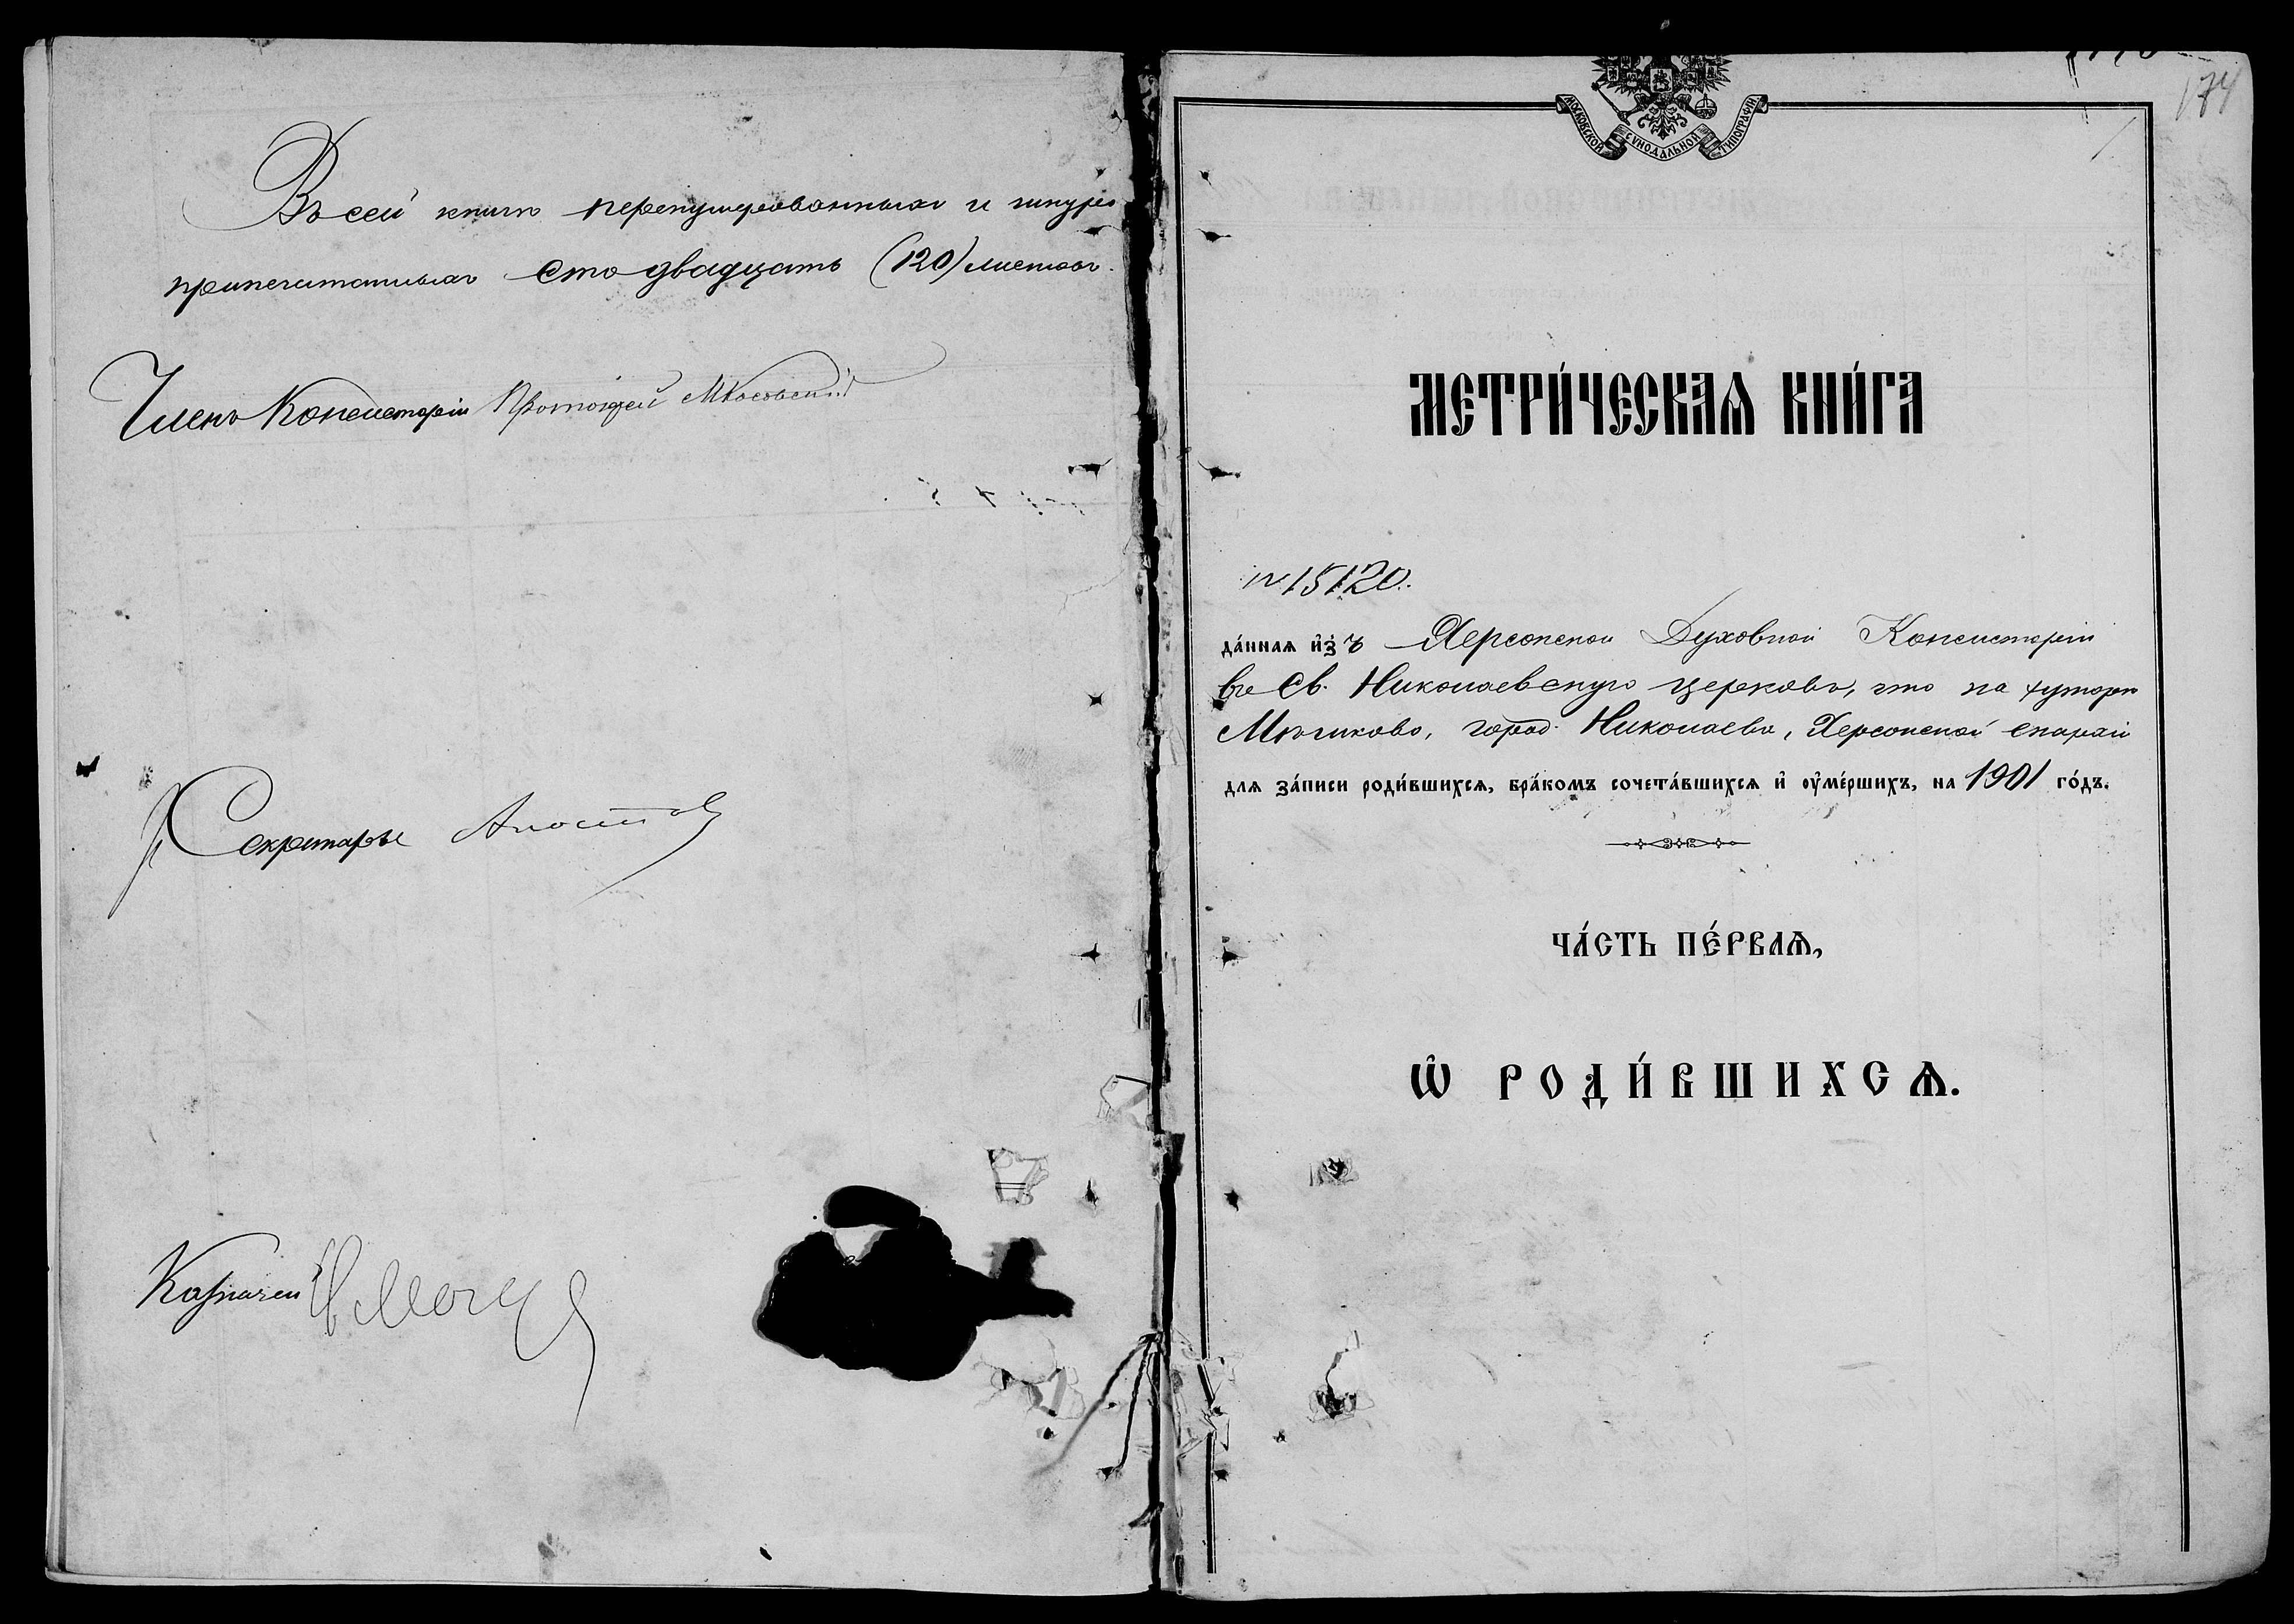 Въ сей книгѣ перенумерованныхъ и шнуро
припечатанныхъ сто двадцать (120) листовъ.
Членъ Консисторіи Протоіерей
Секретарь
Казначей
174
МОСКОВСКОЙ СѴНОДАЛЬНОЙ ТИПОГРАФІИ
МЕТРИ́ЧЕСКАѦ КНИ́ГА
№ 15120.
да́ннаѧ и҆з̾ъ Херсонской Духовной Консисторіи
въ Св. Николаевскую церковь, что на хуторѣ
Мѣшково, город. Николаева, Херсонской епархіи
длѧ за́писи роди́вшихсѧ, бра́комъ сочета́вшихсѧ и҆ ѹ҆ме́ршихъ, на 1901 го́дъ.
ЧА́СТЬ ПЕ́РВАѦ,
Ѡ҆ РОДИ́ВШИХСѦ.